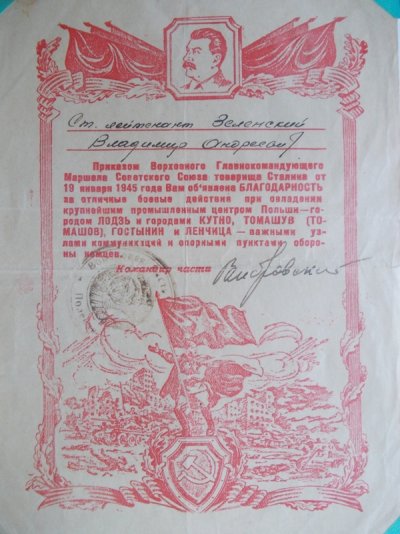 Ст. лейтенант Зеленский
Владимир Андреевич
Приказом Верховного Главнокомандующего
Маршала Советского Союза товарища Сталина от
19 января 1945 года Вам об'явлена БЛАГОДАРНОСТЬ
за отличные боевые действия при овладении
крупнейшим промышленным центром Польши—го-
родом ЛОДЗЬ и городами КУТНО, ТОМАШУВ (ТО-
МАШОВ), ГОСТЫНИН и ЛЕНЧИЦА — важными уз-
лами коммуникаций и опорными пунктами оборо-
ны немцев.
Командир части